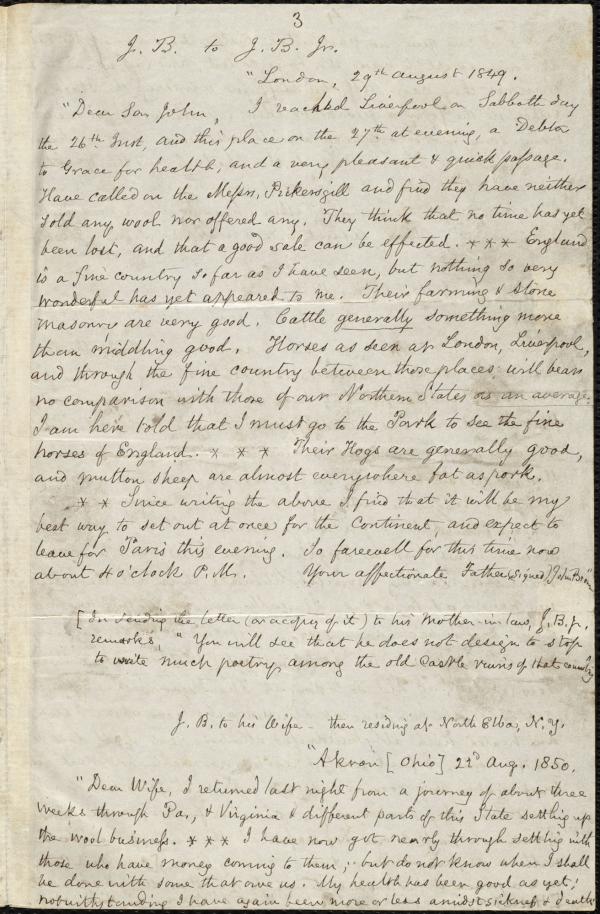 3
J. B. to J. B. Jr.
"London, 29th August 1849.
"Dear Son John, I reached Liverpool on Sabbath day
the 26th Inst, and this place on the 27th at evening, a Debtor
to Grace for health, and a very pleasant & quick passage.
Have called on the Messrs, Pickersgill and find they have neither
sold any wool nor offered any. They think that no time has yet
been lost, and that a good sale can be effected. * * * England
is a fine country so far as I have seen, but nothing so very
wonderful has yet appeared to me. Their farming & stone
masonry are very good. Cattle generally something more
than middling good. Horses as seen at London, Liverpool,
and through the fine country between those places will bear
no comparison with those of our Northern States as an average.
I am here told that I must go to the Park to see the fine
horses of England. * * * Their Hogs are generally good,
and mutton sheep are almost everywhere fat as pork.
* * Since writing the above I find that it will be my
best way to set out at once for the continent, and expect to
leave for Paris this evening. So farewell for this time now
about 4 o'clock P.M. Your affectionate Father (Signed) John Brown"
[In sending the letter (or a copy of it) to his Mother-in-law, J. B. Jr.
remarks, "You will see that he does not design to stop
to write much poetry among the old castle ruins of that country
J. B. to his Wife - then residing at North Elba, N.Y.
"Akron [Ohio] 22d Aug. 1850.
"Dear Wife, I returned last night from a journey of about three
weeks through Pa., & Virginia & different parts of this State settling up
the wool business. * * * I have now got nearly through settling with
those who have money coming to them; but do not know when I shall
be done with some that owe us. My health has been good as yet;
notwithstanding I have again been more or less amidst sickness & death